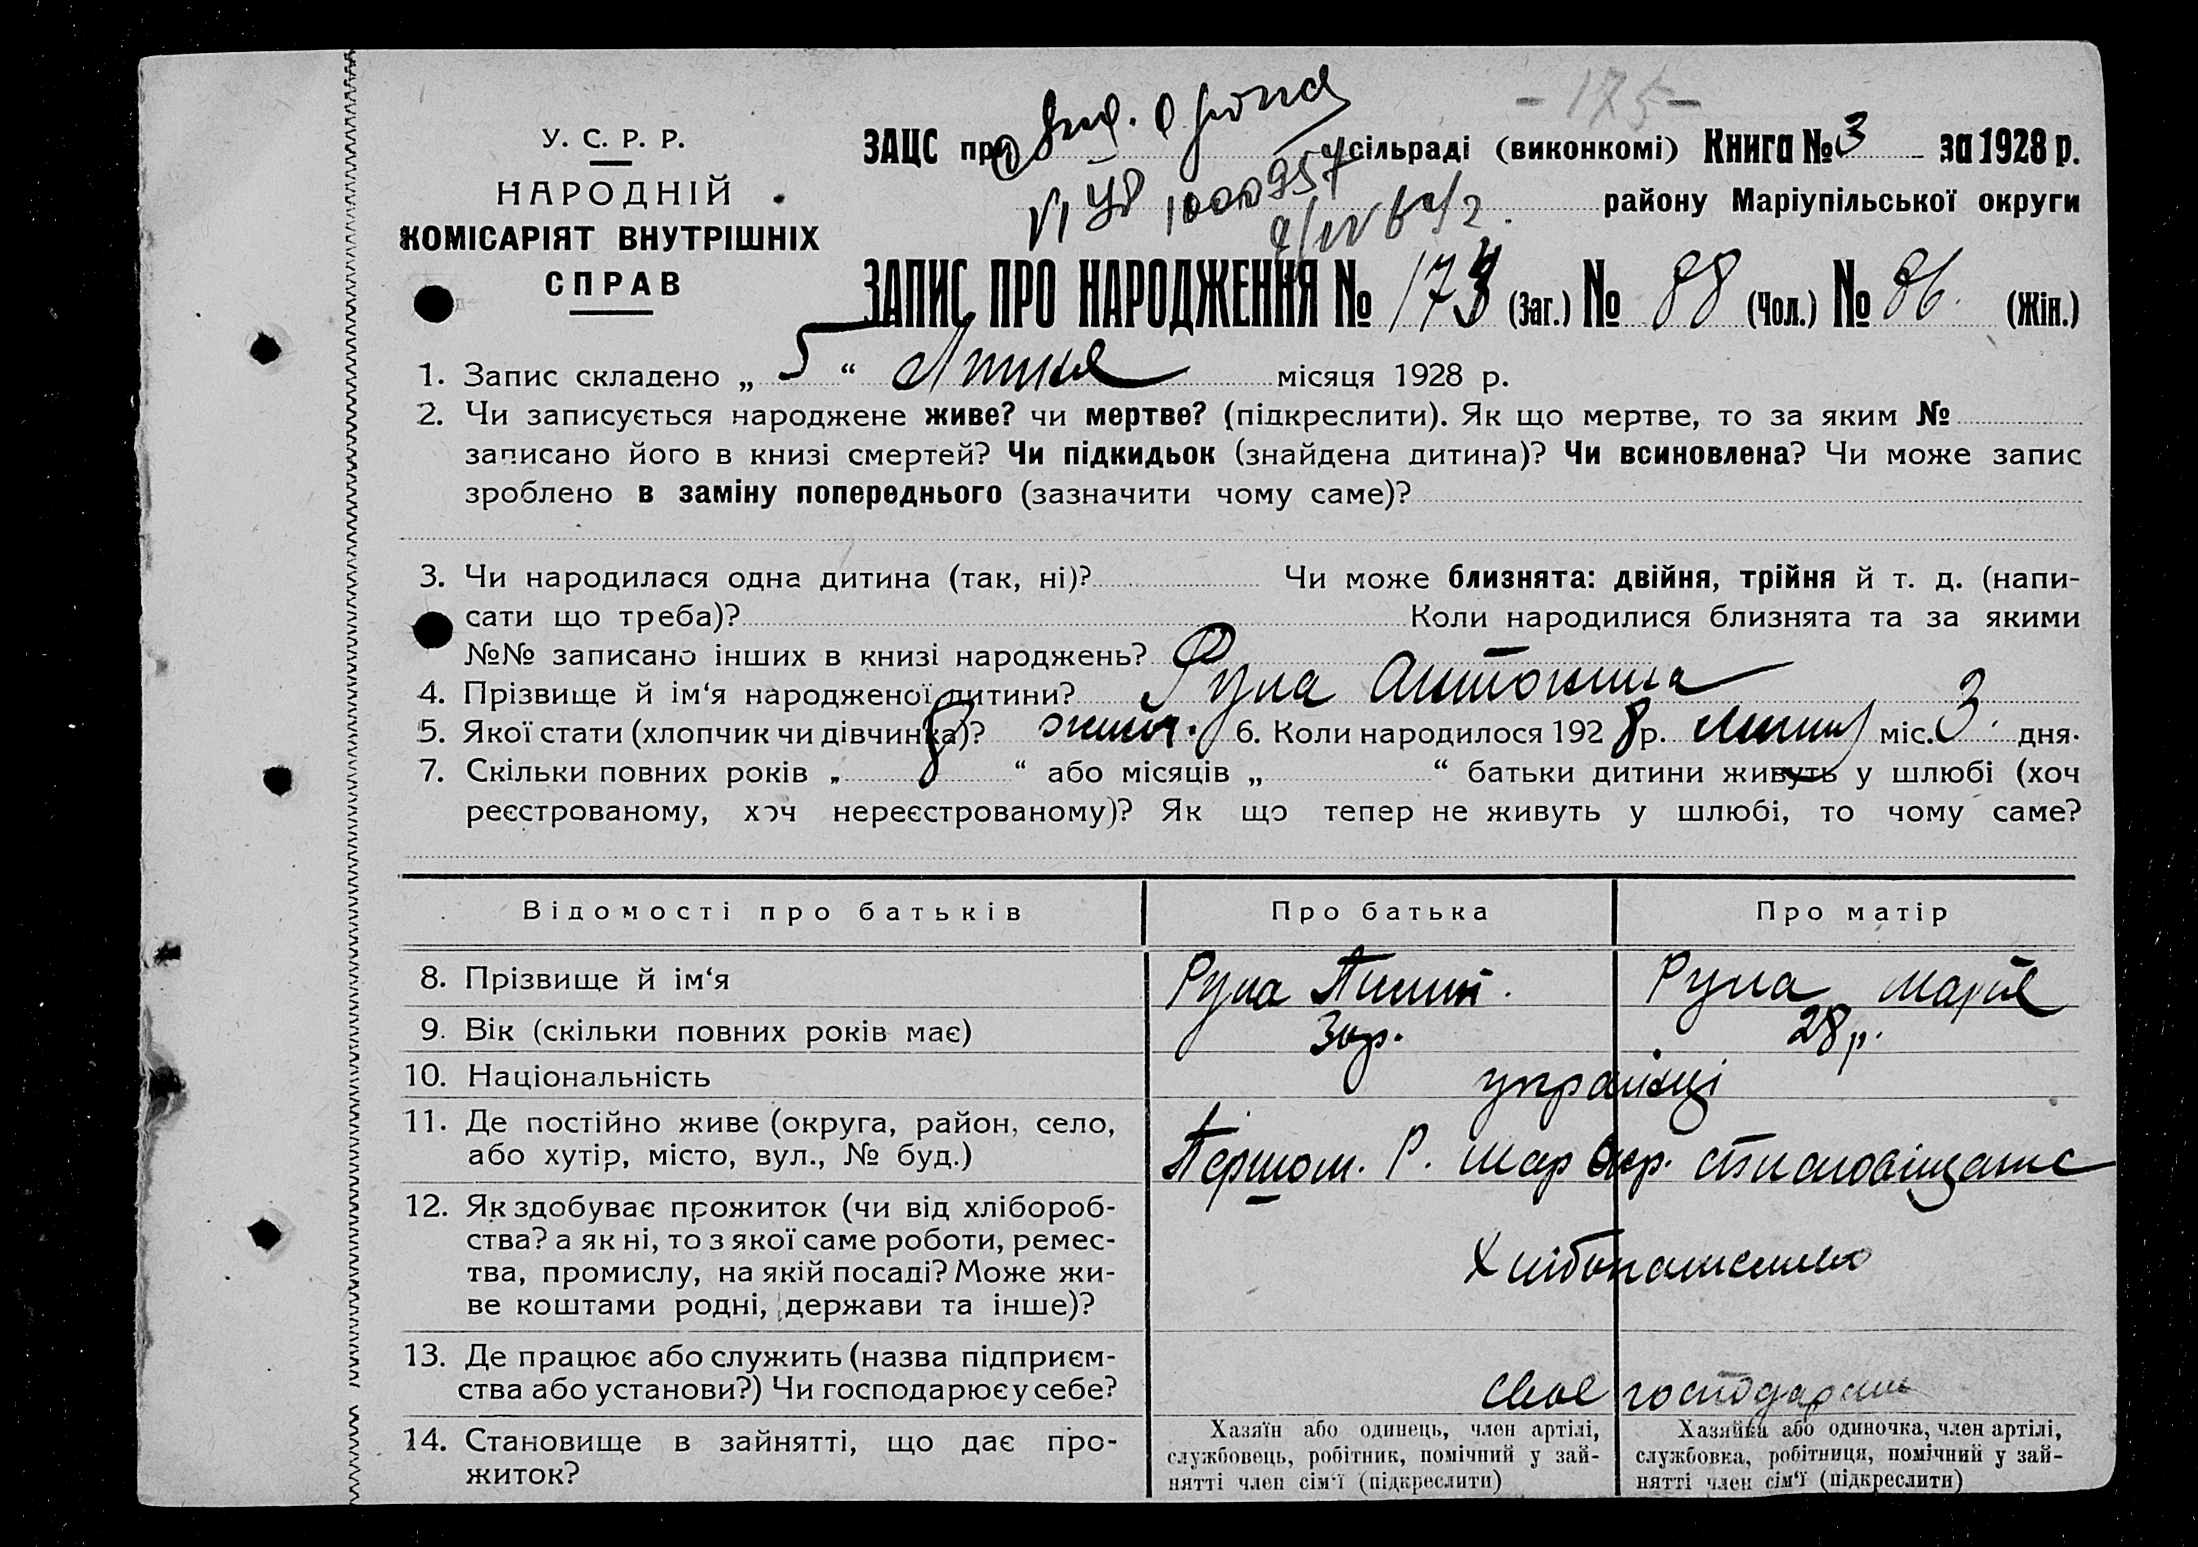 - 175 -
У. С. Р. Р.
НАРОДНІЙ
КОМІСАРІЯТ ВНУТРІШНІХ
СПРАВ
ЗАЦС при сільраді (виконкомі) Книга № 3 за 1928 р.
VI 1000957
району Маріупільської округи
ЗАПИС ПРО НАРОДЖЕННЯ № 174 (Заг.) № 88 (Чол.) № 86. (Жін.)
1. Запис складено „ 5 “ Липня місяця 1928 р.
2. Чи записується народжене живе? чи мертве? (підкреслити). Як що мертве, то за яким №
записано його в книзі смертей? Чи підкидьок (знайдена дитина)? Чи всиновлена? Чи може запис
зроблено в заміну попереднього (зазначити чому саме)?
3. Чи народилася одна дитина (так, ні)? Чи може близнята: двійня, трійня й т. д. (напи-
сати що треба)? Коли народилися близнята та за якими
№№ записано інших в книзі народжень?
4. Прізвище й ім‘я народженої дитини? Рула Антонина
5. Якої стати (хлопчик чи дівчинка)? жиноч. 6. Коли народилося 1928 р. Липня міс. 3 дня.
7. Скільки повних років „ 8 “ або місяців „ “ батьки дитини живуть у шлюбі (хоч
реєстрованому, хоч нереєстрованому)? Як що тепер не живуть у шлюбі, то чому саме?
Відомості про батьків Про батька Про матір
8. Прізвище й ім‘я Рула Пилип. Рула Марія
9. Вік (скільки повних років має) 30р. 28 р.
10. Національність українці
11. Де постійно живе (округа, район, село,
або хутір, місто, вул., № буд.) Першот. Р. Мар Окр.
12. Як здобуває прожиток (чи від хлібороб-
ства? а як ні, то з якої саме роботи, ремес-
тва, промислу, на якій посаді? Може жи-
ве коштами родні, держави та інше)?
Хлібопашество
13. Де працює або служить (назва підприєм-
ства або установи?) Чи господарює у себе? своє господарство
14. Становище в зайнятті, що дає про-
житок?
Хазяїн або одинець, член артілі,
службовець, робітник, помічний у зай-
нятті член сім‘ї (підкреслити)
Хазяйка або одиночка, член артілі,
службовка, робітниця, помічний у зай-
нятті член сім‘ї (підкреслити)